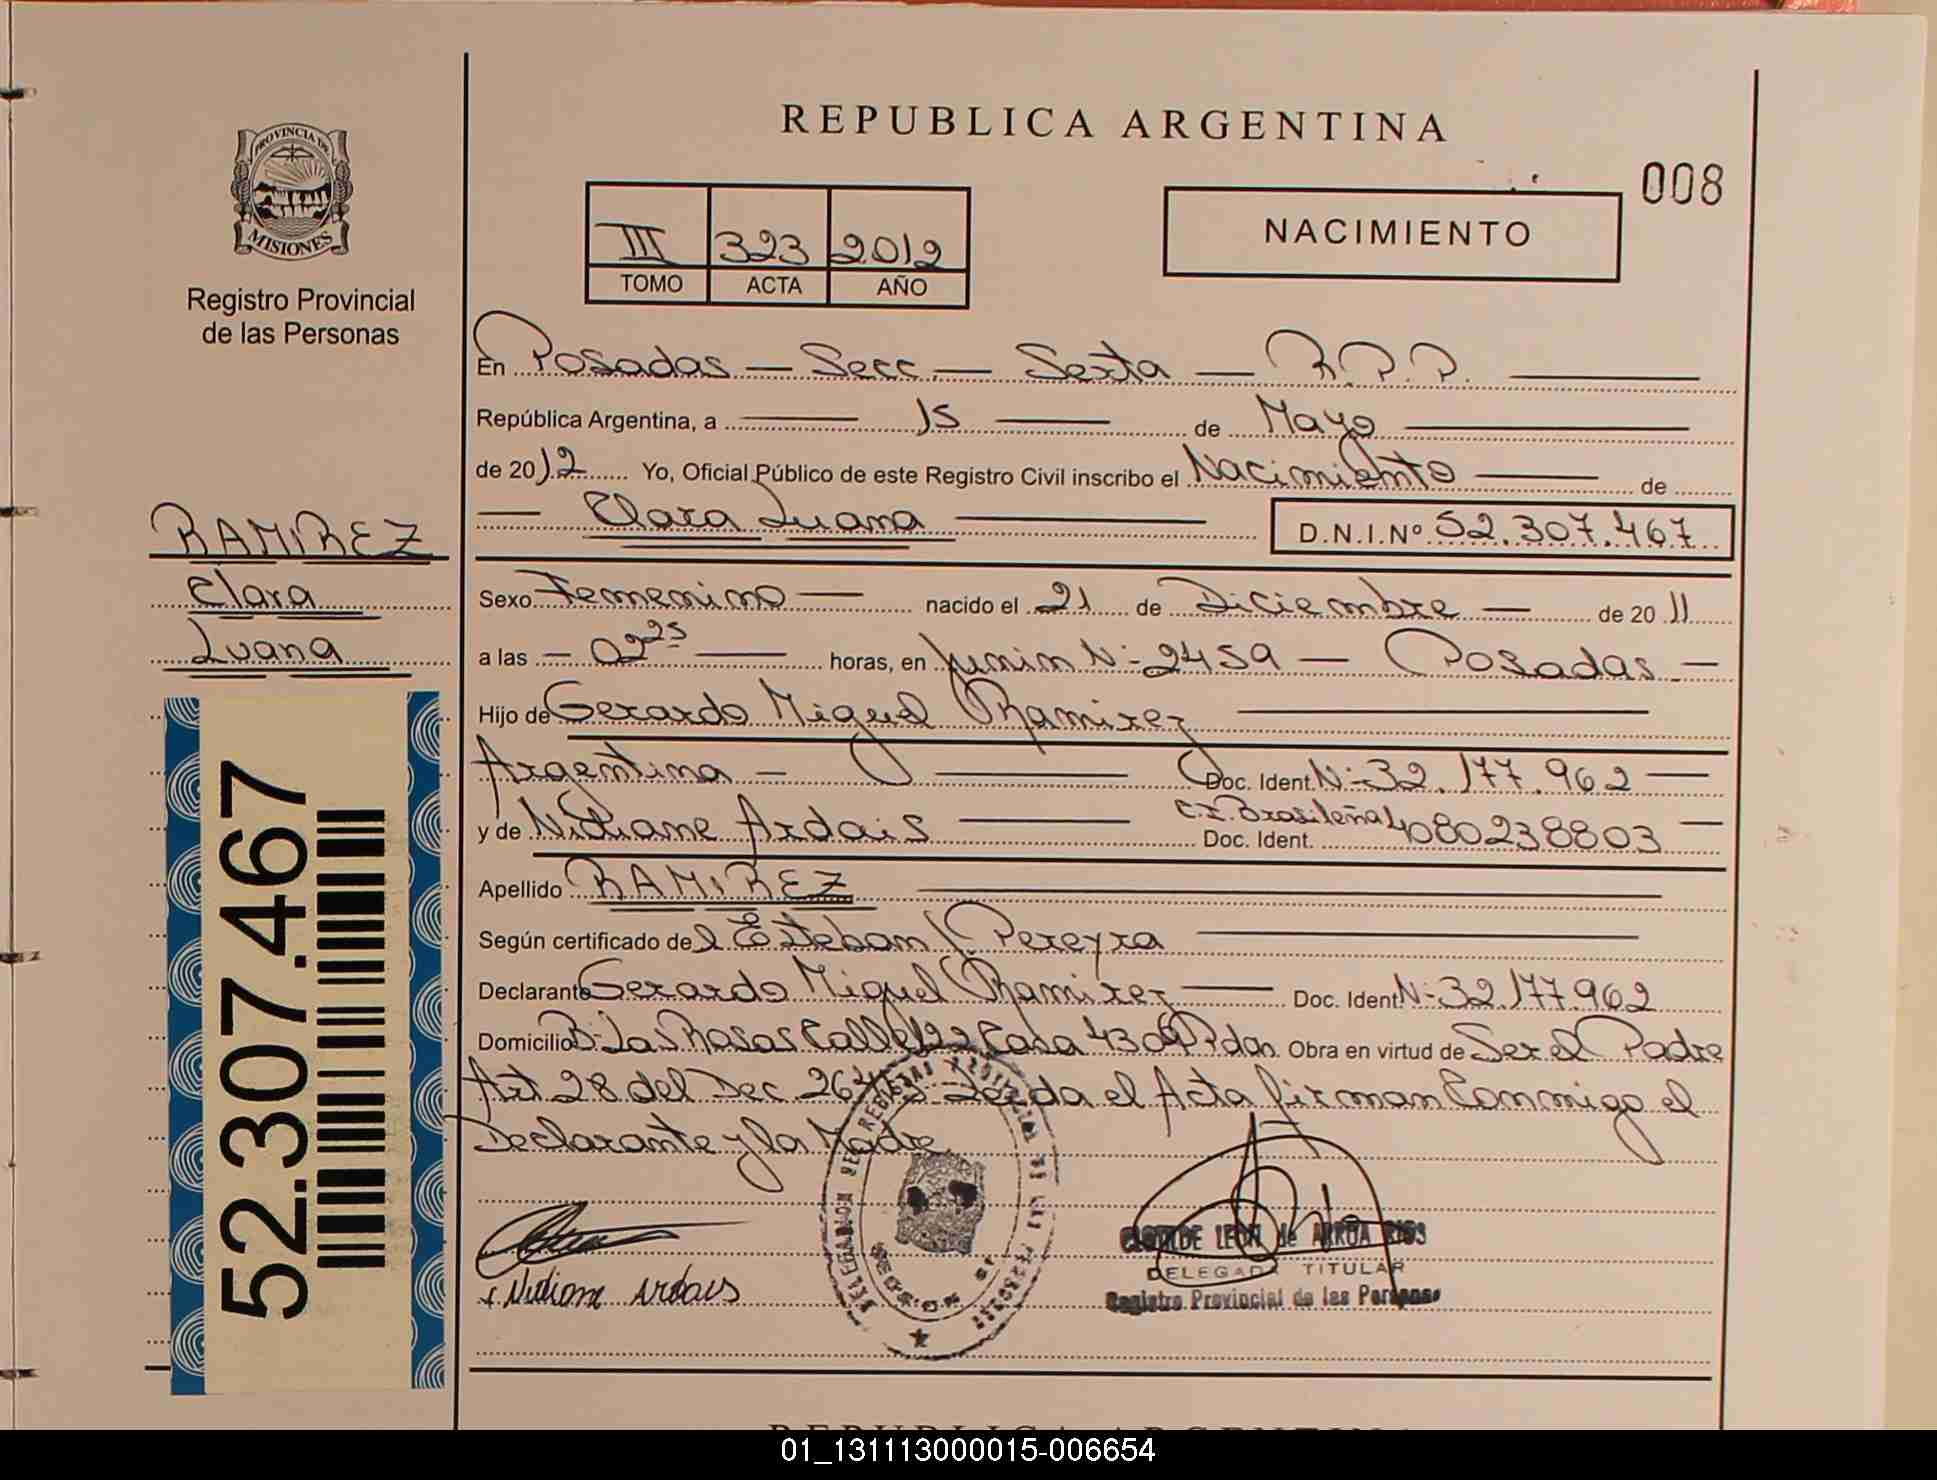 REPUBLICA ARGENTINA
008
PROVINCIA DE
MISIONES
Registro Provincial
de las Personas
III 323 2012
TOMO ACTA AÑO
NACIMIENTO
En Posadas — Secc — Sexta — R.P.P.
República Argentina, a 15 de Mayo
de 2012 Yo, Oficial Público de este Registro Civil inscribo el Nacimiento de
Clara Luana D.N.I.Nº 52.307.467
RAMIREZ
Clara
Luana
Sexo Femenino nacido el 21 de Diciembre de 2011
a las 02 25 horas, en Junin Nº 2459 — Posadas
Hijo de Gerardo Miguel Ramirez
Argentina Doc. Ident. Nº 32.177.962
y de Nidiane Ardais C.I. Brasileña Doc. Ident. 4080238803
Apellido RAMIREZ
Según certificado del Esteban Pereyra
Declarante Gerardo Miguel Ramirez Doc. Ident Nº 32.177.962
Domicilio Bº Las Rosas Calle 122 Casa 4309 Pdas. Obra en virtud de Ser el Padre
Art 28 del Dec Leida el Acta firman Conmigo el
Declarante y la Madre
Nidiane Ardais
CLOTILDE LEON de ARRUA RIOS
DELEGADA TITULAR
Registro Provincial de las Personas
52.307.467
REPUBLICA ARGENTINA
01_131113000015-006654